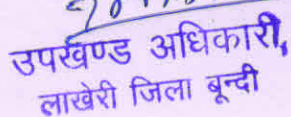 उपखण्ड अधिकारी,
लाखेरी जिला बून्दी